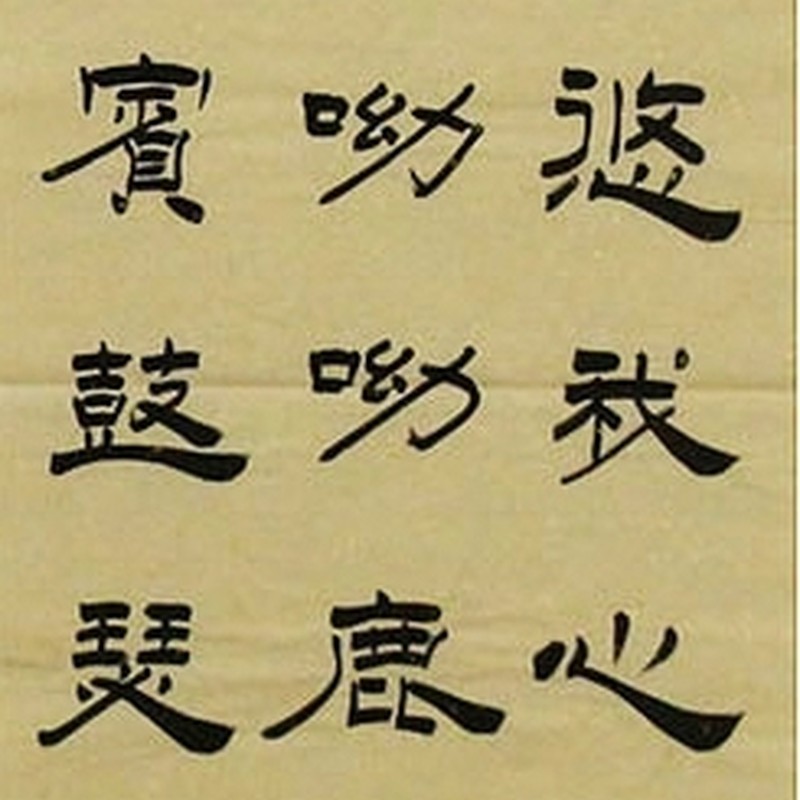 悠我心
呦呦鹿
賓鼓瑟